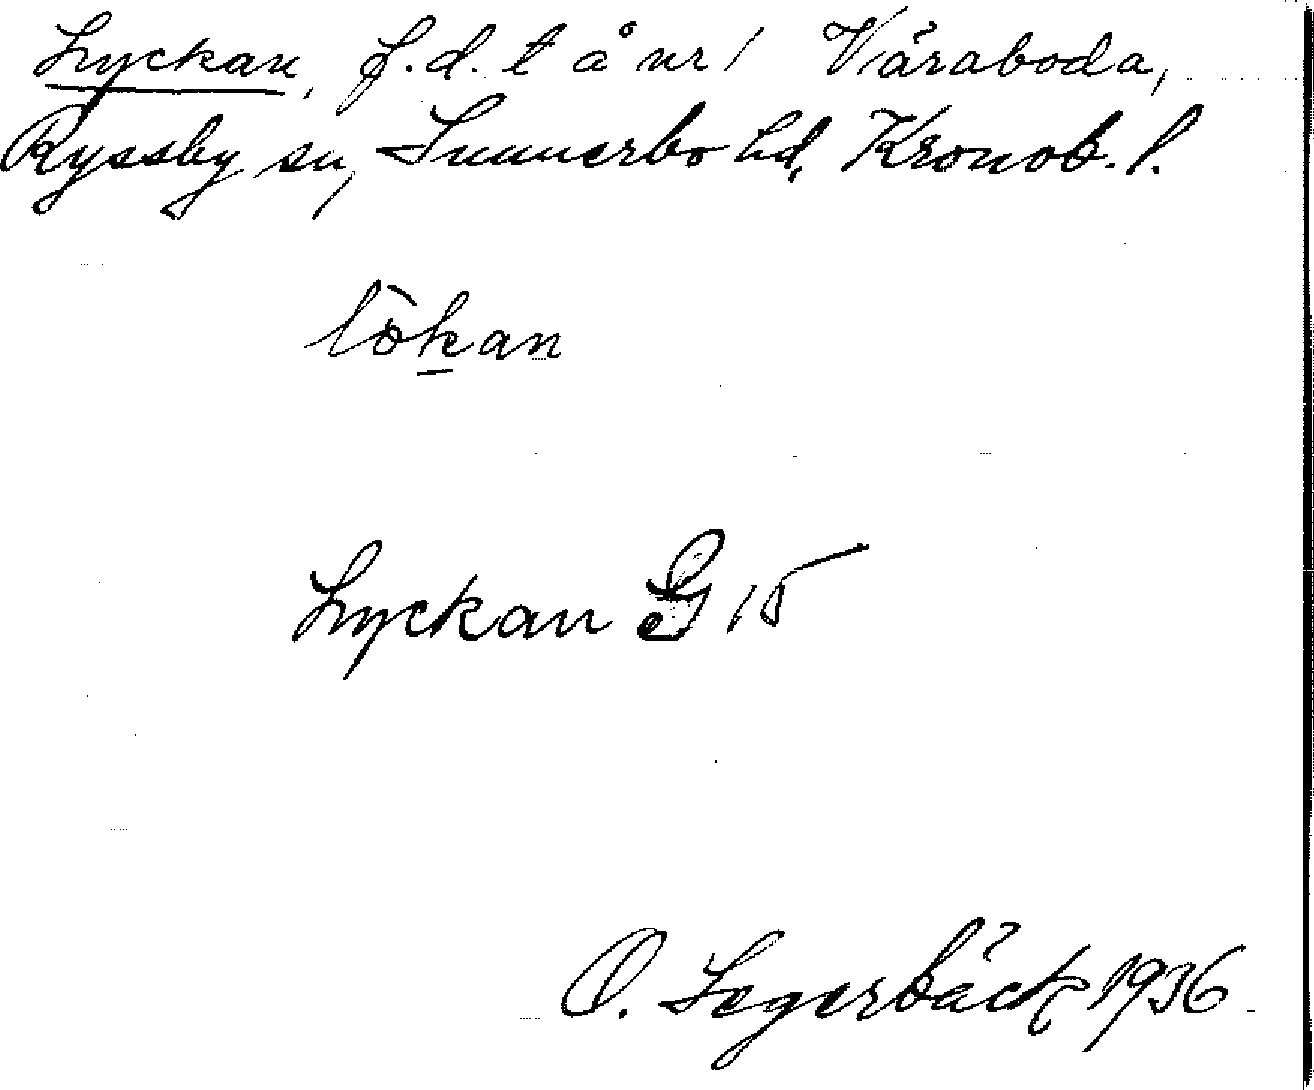 Lyckan, f.d. t å nr 1 Våraboda,
Ryssby sn, Sunnerbo hd, Kronob. l.
lòkan
Lyckan G 15
O. Segerbäck 1936